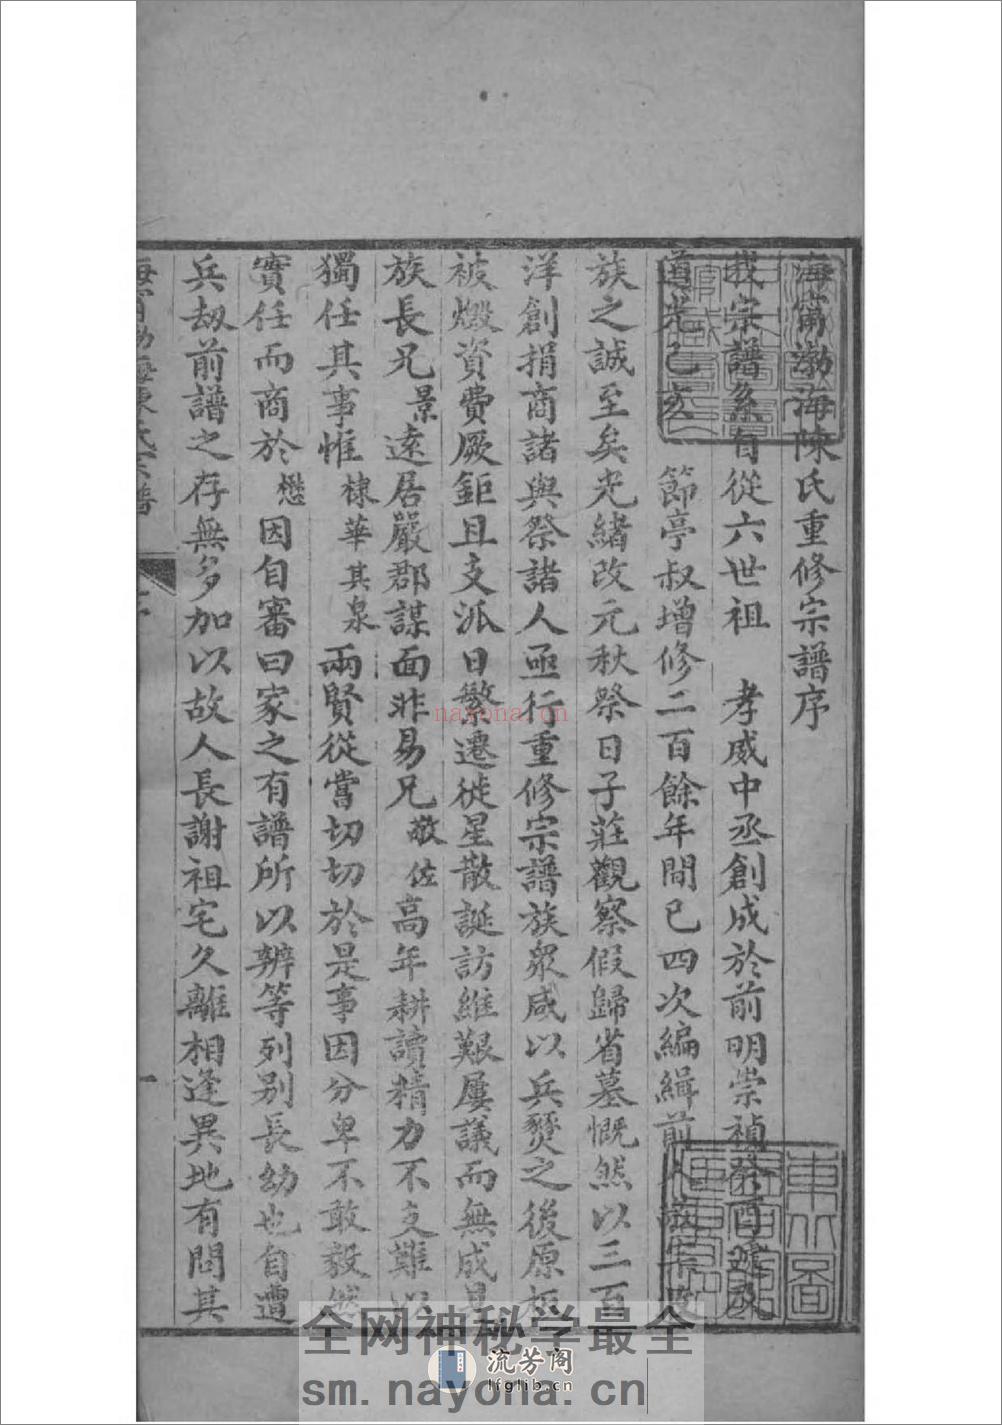 海甯渤海陳氏重修宗譜序
我宗譜系自從六世祖 孝威中丞創成於前明崇禎癸酉遞及
道光己亥 節亭叔增修二百餘年間已四次編緝前人敬宗收
族之誠至矣光緒改元秋祭日子莊觀察假歸省墓慨然以三百
洋創捐商諸與祭諸人亟行重修宗譜族眾咸以兵燹之後原板
被燬資費厥鉅且支派日繁遷徙星散誕訪維艱屢議而無成是
族長兄景遠居嚴郡謀面非易兄敬佐高年耕讀精力不支難以
獨任其事惟棣華其泉兩賢從嘗切切於是事因分卑不敢毅然
實任而商於懋因自審曰家之有譜所以辨等列别長幼也自遭
兵刼前譜之存無多加以故人長謝祖宅久離相逢異地有問其
一
nayona.cn
全网神秘学最全
流芳阁
lfglib.cn
sm.nayona.cn